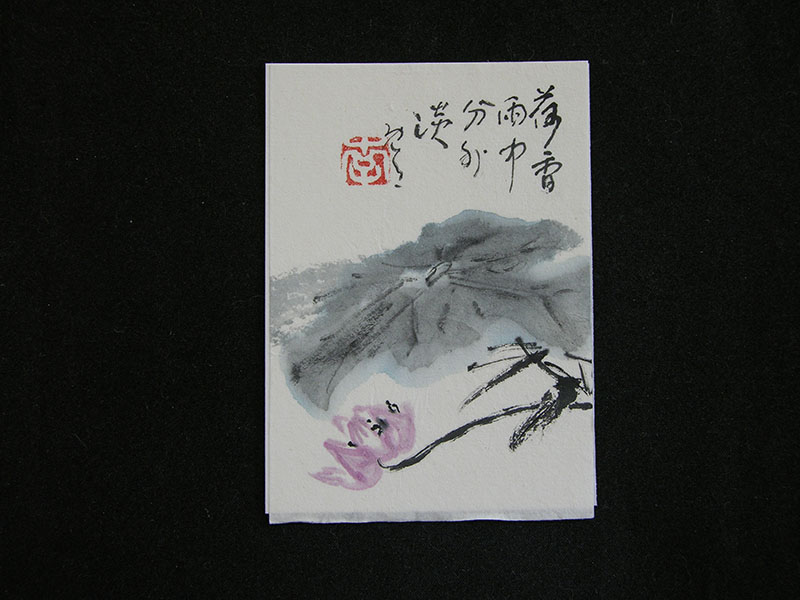 荷香
雨中
分外
淡